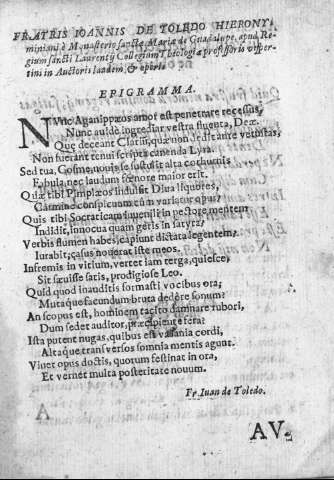 FRATRIS IOANNIS DE TOLEDO HIERONY-
miniani è Monasterio sanctæ Mariæ de Guadalupe, apud Re-
gium sancti Laurentij Collegium Theologiæ professoris vesper-
tini in Auctoris laudem, & operis
EPIGRAMMA.
NVnc Aganippæos amor est penetrare recessus,
Nunc aulde ingrediar vestra fluenta, Deæ.
Quę deceant Clarium, quæ non
Non fuerant tenui scripta canenda Lyra.
Sed tua, Cosme, nouis se sustulit alta cothurnis
Fabula, nec laudum fœnore maior erit.
Quæ tibi Pimplæos indulsit Diua liquores,
Carmine conspicuum cùm variatur opus?
Quis tibi Socraticam iuuenili in pectore mentem
Indidit, innocua quam geris in satyra?
Verbis flumen habes, capiunt dictata legentem,
Iurabit, casus nouerat iste meos.
Infremis in vitium, vertet iam terga, quiesce,
Sit sæuisse satis, prodigiose Leo.
Quid quod inauditis formasti vocibus ora;
Mutaque facundum bruta dedêre sonum?
An scopus est, hominem tacito damnare rubori,
Dum sedet auditor, præcipiente fera?
Ista putent nugas, quibus est vasania cordi,
Altaque transuersos somnia mentis agunt.
Viuet opus doctis, quorum festinat in ora,
Et vernet multa posteritate nouum.
Fr. Iuan de Toledo.
A
AV-